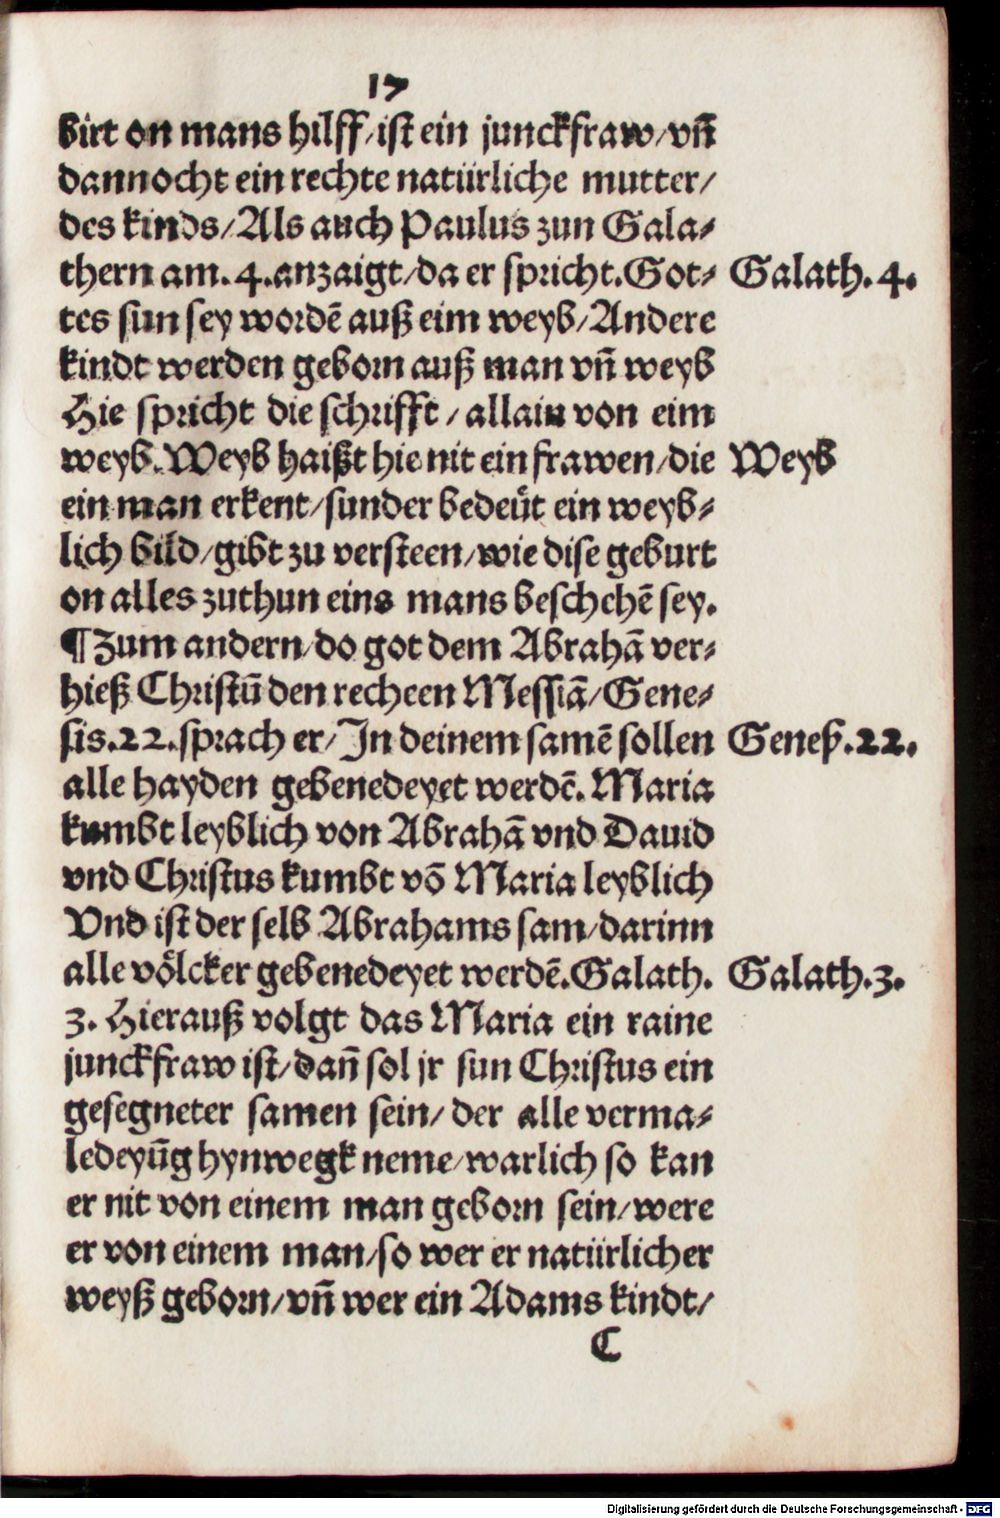 17
birt on mans hilff/ist ein junckfraw/vñ
dannocht ein rechte natürliche mutter/
des kinds/Als auch Paulus zun Gala⸗
thern am.4.anzaigt/da er spricht.Got⸗ Galath.4.
tes sun sey wordẽ auß eim weyb/Andere
kindt werden geborn auß man vñ weyb
Hie spricht die schrifft/allain von eim
weyb.Weyb haißt hie nit ein frawen/die Weyb
ein man erkent/sunder bedeüt ein weyb⸗
lich bild/gibt zu versteen/wie dise geburt
on alles zuthun eins mans beschehẽ sey.
¶Zum andern/do got dem Abrahã ver⸗
hieß Christũ den rechten Messiã/Gene⸗
sis.22.sprach er/In deinem samẽ sollen Genes.22.
alle hayden gebenedeyet werdẽ.Maria
kumbt leyblich von Abrahã vnd Dauid
vnd Christus kumbt võ Maria leyblich
Vnd ist der selb Abrahams sam/darinn
alle völcker gebenedeyet werdẽ.Galath. Galath.3.
3.Hierauß volgt das Maria ein raine
junckfraw ist/dañ sol jr sun Christus ein
gesegneter samen sein/der alle verma⸗
ledeyũg hynwegk neme/warlich so kan
er nit von einem man geborn sein/were
er von einem man/so wer er natürlicher
weyß geborn/vñ wer ein Adams kindt/
C
Digitalisierung gefördert durch die Deutsche Forschungsgemeinschaft - DFG